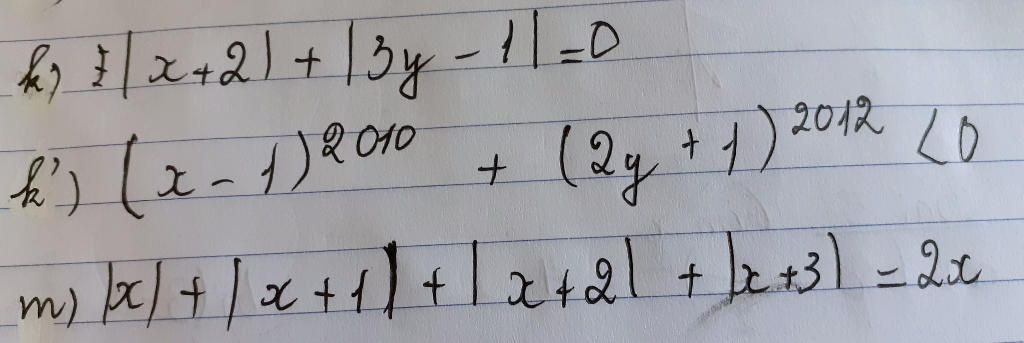 k) |x+2| + |3y - 1| = 0
k') (x - 1)^2010 + (2y + 1)^2012 < 0
m) |x| + |x + 1| + |x + 2| + |x + 3| = 2x